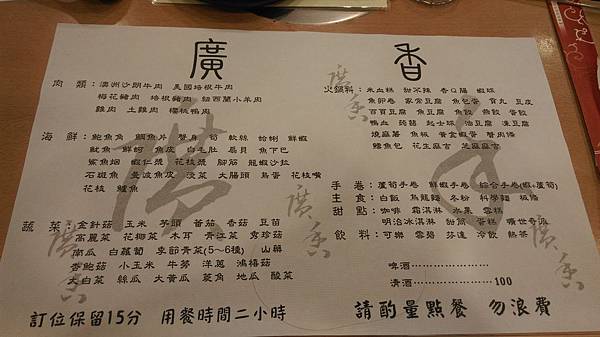 廣香
肉 類：澳洲沙朗牛肉 美國培根牛肉
梅花豬肉 培根豬肉 紐西蘭小羊肉
雞肉 土雞肉 櫻桃鴨肉
海 鮮：鮑魚角 鯛魚片 蟹身 蛤 軟絲 蛤蜊 鮮蝦
魷魚 鮮蚵 魚皮 白毛肚 扇貝 魚下巴
鯊魚烟 蝦仁漿 花枝漿 腳筋 龍蝦沙拉
石斑魚 曼波魚皮 淡菜 大腸頭 鳥蛋 花枝嘴
花枝 鱸魚
蔬 菜：金針菇 玉米 芋頭 番茄 香菇 豆苗
高麗菜 花椰菜 木耳 青江菜 秀珍菇
南瓜 白蘿蔔 季節青菜(5~6種) 山藥
杏鮑菇 小玉米 牛蒡 洋蔥 鴻禧菇
大白菜 絲瓜 大黃瓜 菱角 地瓜 酸菜
訂位保留15分 用餐時間二小時
火鍋料：米血糕 甜不辣 香Q腸 蝦球
魚卵卷 家常豆腐 魚包蛋 貢丸 豆皮
百頁豆腐 魚豆腐 魚餃 燕餃 蛋餃
鴨血 蒟蒻 起士球 油豆腐 凍豆腐
燒麻薯 魚板 黃食蝦蛋 蟹肉條
鱈魚包 花生麻吉 芝麻麻吉
手 卷：蘆筍手卷 鮮蝦手卷 綜合手卷(蝦,蘆筍)
主 食：白飯 烏龍麵 冬粉 科學麵 板條
甜 點：咖啡 霜淇淋 水果 雪糕
明治冰淇淋 甜筒 蛋糕 曠世奇派
飲 料：可樂 雪碧 芬達 冷飲 熱茶
啤酒……………………
清酒……………………100
請酌量點餐 勿浪費